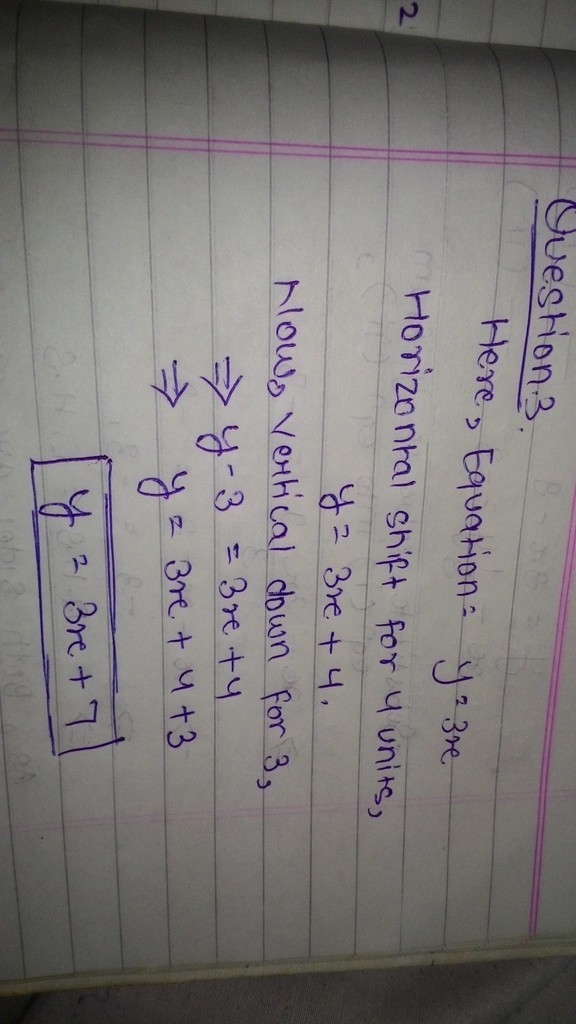 2
Question 3.
Here, Equation = y = 3x
Horizontal shift for 4 units,
y = 3x + 4.
Now, vertical down for 3,
⇒ y - 3 = 3x + 4
⇒ y = 3x + 4 + 3
y = 3x + 7